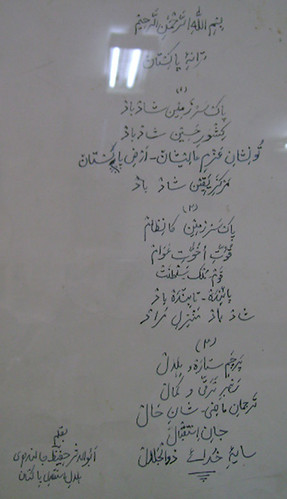 بسم اللہ الرحمٰن الرحیم
ترانۂ پاکستان
(۱)
پاک سرزمین شاد باد
کشورِ حسین شاد باد
تو نشانِ عزمِ عالیشان - ارضِ پاکستان
مرکزِ یقین شاد باد
(۲)
پاک سرزمین کا نظام
قوتِ اخوتِ عوام
قوم ملک سلطنت
پائندہ - تابندہ باد
شاد باد منزلِ مراد
(۳)
پرچمِ ستارہ و ہلال
رہبرِ ترقی و کمال
ترجمانِ ماضی - شانِ حال
جانِ استقبال
سایۂ خدائے ذوالجلال
بقلم
ابوالاثر حفیظ جالندھری